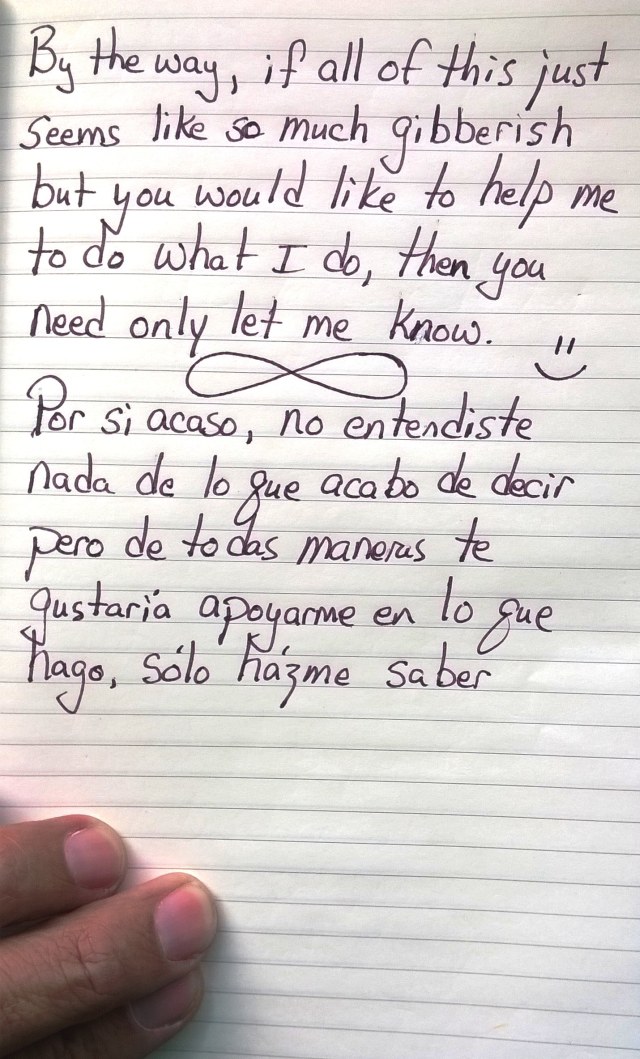 By the way, if all of this just
seems like so much gibberish
but you would like to help me
to do what I do, then you
need only let me know.
Por si acaso, no entendiste
nada de lo que acabo de decir
pero de todas maneras te
gustaría apoyarme en lo que
hago, sólo házme saber